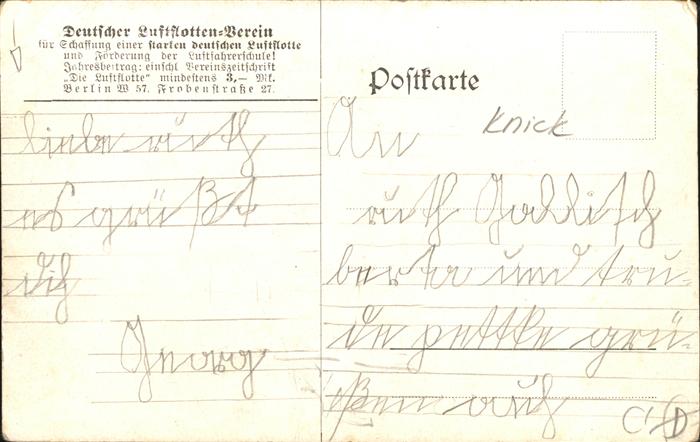 Deutscher Luftflotten-Verein
für Schaffung einer starken deutschen Luftflotte
und Förderung der Luftfahrerschule!
Jahresbeitrag: einschl Vereinszeitschrift
„Die Luftflotte“ mindestens 3,— Mk.
Berlin W 57. Frobenstraße 27.
Postkarte
Knick
liebe ruth
es grüßt
dich
Georg
An
ruth Goldisch
berta und tru-
de pettke grü-
ßen auch